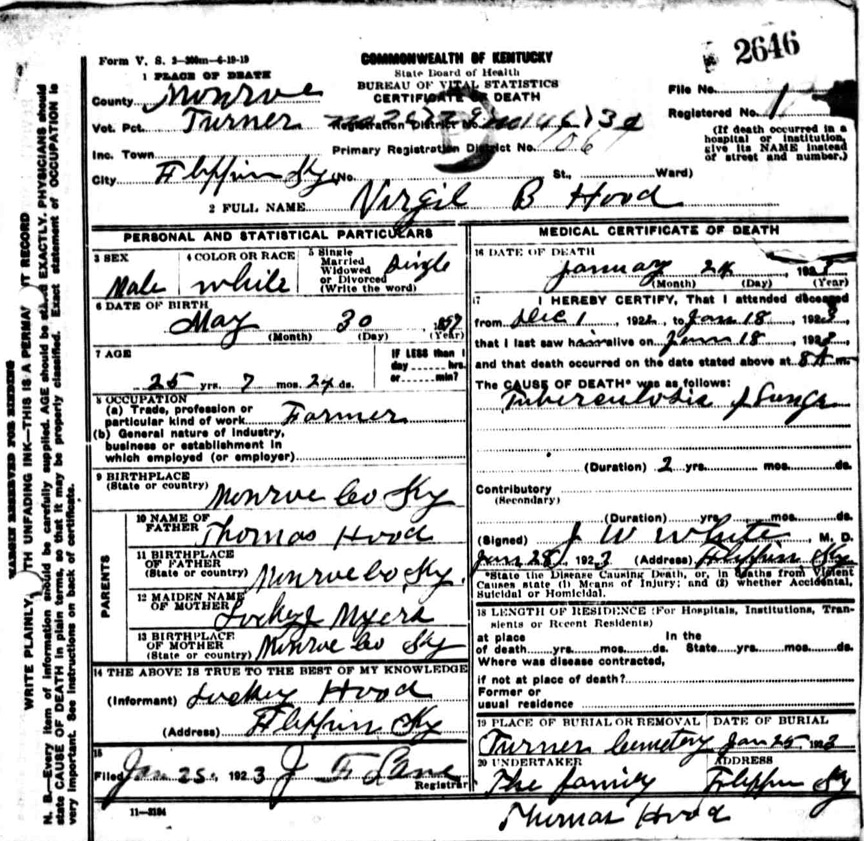 Form V. S. 3-300m-6-19-19
1 PLACE OF DEATH
County Monroe
Vot. Pct. Turner
Inc. Town
City Flippin Ky No. St., Ward)
COMMONWEALTH OF KENTUCKY
State Board of Health
BUREAU OF VITAL STATISTICS
CERTIFICATE OF DEATH
Registration District No.
Primary Registration District No.
2646
File No.
Registered No. 1
(If death occurred in a hospital or institution, give its NAME instead of street and number.)
2 FULL NAME Virgil B Hood
PERSONAL AND STATISTICAL PARTICULARS
3 SEX Male
4 COLOR OR RACE white
5 Single Married Widowed or Divorced (Write the word) Single
6 DATE OF BIRTH
May 30
(Month) (Day) (Year)
7 AGE
25 yrs. 7 mos. 24 ds.
IF LESS than 1
day hrs.
or min?
8 OCCUPATION
(a) Trade, profession or
particular kind of work Farmer
(b) General nature of industry,
business or establishment in
which employed (or employer)
9 BIRTHPLACE
(State or country) Monroe Co Ky
PARENTS
10 NAME OF
FATHER Thomas Hood
11 BIRTHPLACE
OF FATHER
(State or country) Monroe Co Ky.
12 MAIDEN NAME
OF MOTHER Myers
13 BIRTHPLACE
OF MOTHER
(State or country) Monroe Co Ky
14 THE ABOVE IS TRUE TO THE BEST OF MY KNOWLEDGE
(Informant) Lockey Hood
(Address) Flippin Ky
15
Filed Jan 25, 1923 J F Lane
Registrar
11-3184
MEDICAL CERTIFICATE OF DEATH
16 DATE OF DEATH
January 24, 1923
(Month) (Day) (Year)
17 I HEREBY CERTIFY, That I attended deceased
from Dec 1 1922, to Jan 18, 1923,
that I last saw him alive on Jan 18, 1923,
and that death occurred on the date stated above at 8 A m.
The CAUSE OF DEATH* was as follows:
Tuberculosis of Lungs
(Duration) 2 yrs. mos. ds.
Contributory
(Secondary)
(Duration) yrs. mos. ds.
(Signed) J W White, M. D.
Jan 25, 1923 (Address) Flippin Ky
*State the Disease Causing Death, or, in deaths from Violent
Causes state (1) Means of Injury; and (2) whether Accidental,
Suicidal or Homicidal.
18 LENGTH OF RESIDENCE (For Hospitals, Institutions, Tran-
sients or Recent Residents)
at place In the
of death yrs. mos. ds. State yrs. mos. ds.
Where was disease contracted,
if not at place of death?
Former or
usual residence
19 PLACE OF BURIAL OR REMOVAL DATE OF BURIAL
Turner Cemetery Jan 25, 1923
20 UNDERTAKER ADDRESS
The family Flippin Ky
Thomas Hood
MARGIN RESERVED FOR BINDING
WRITE PLAINLY, WITH UNFADING INK—THIS IS A PERMANENT RECORD
N. B.—Every item of information should be carefully supplied. AGE should be stated EXACTLY. PHYSICIANS should
state CAUSE OF DEATH in plain terms, so that it may be properly classified. Exact statement of OCCUPATION is
very important. See instructions on back of certificate.